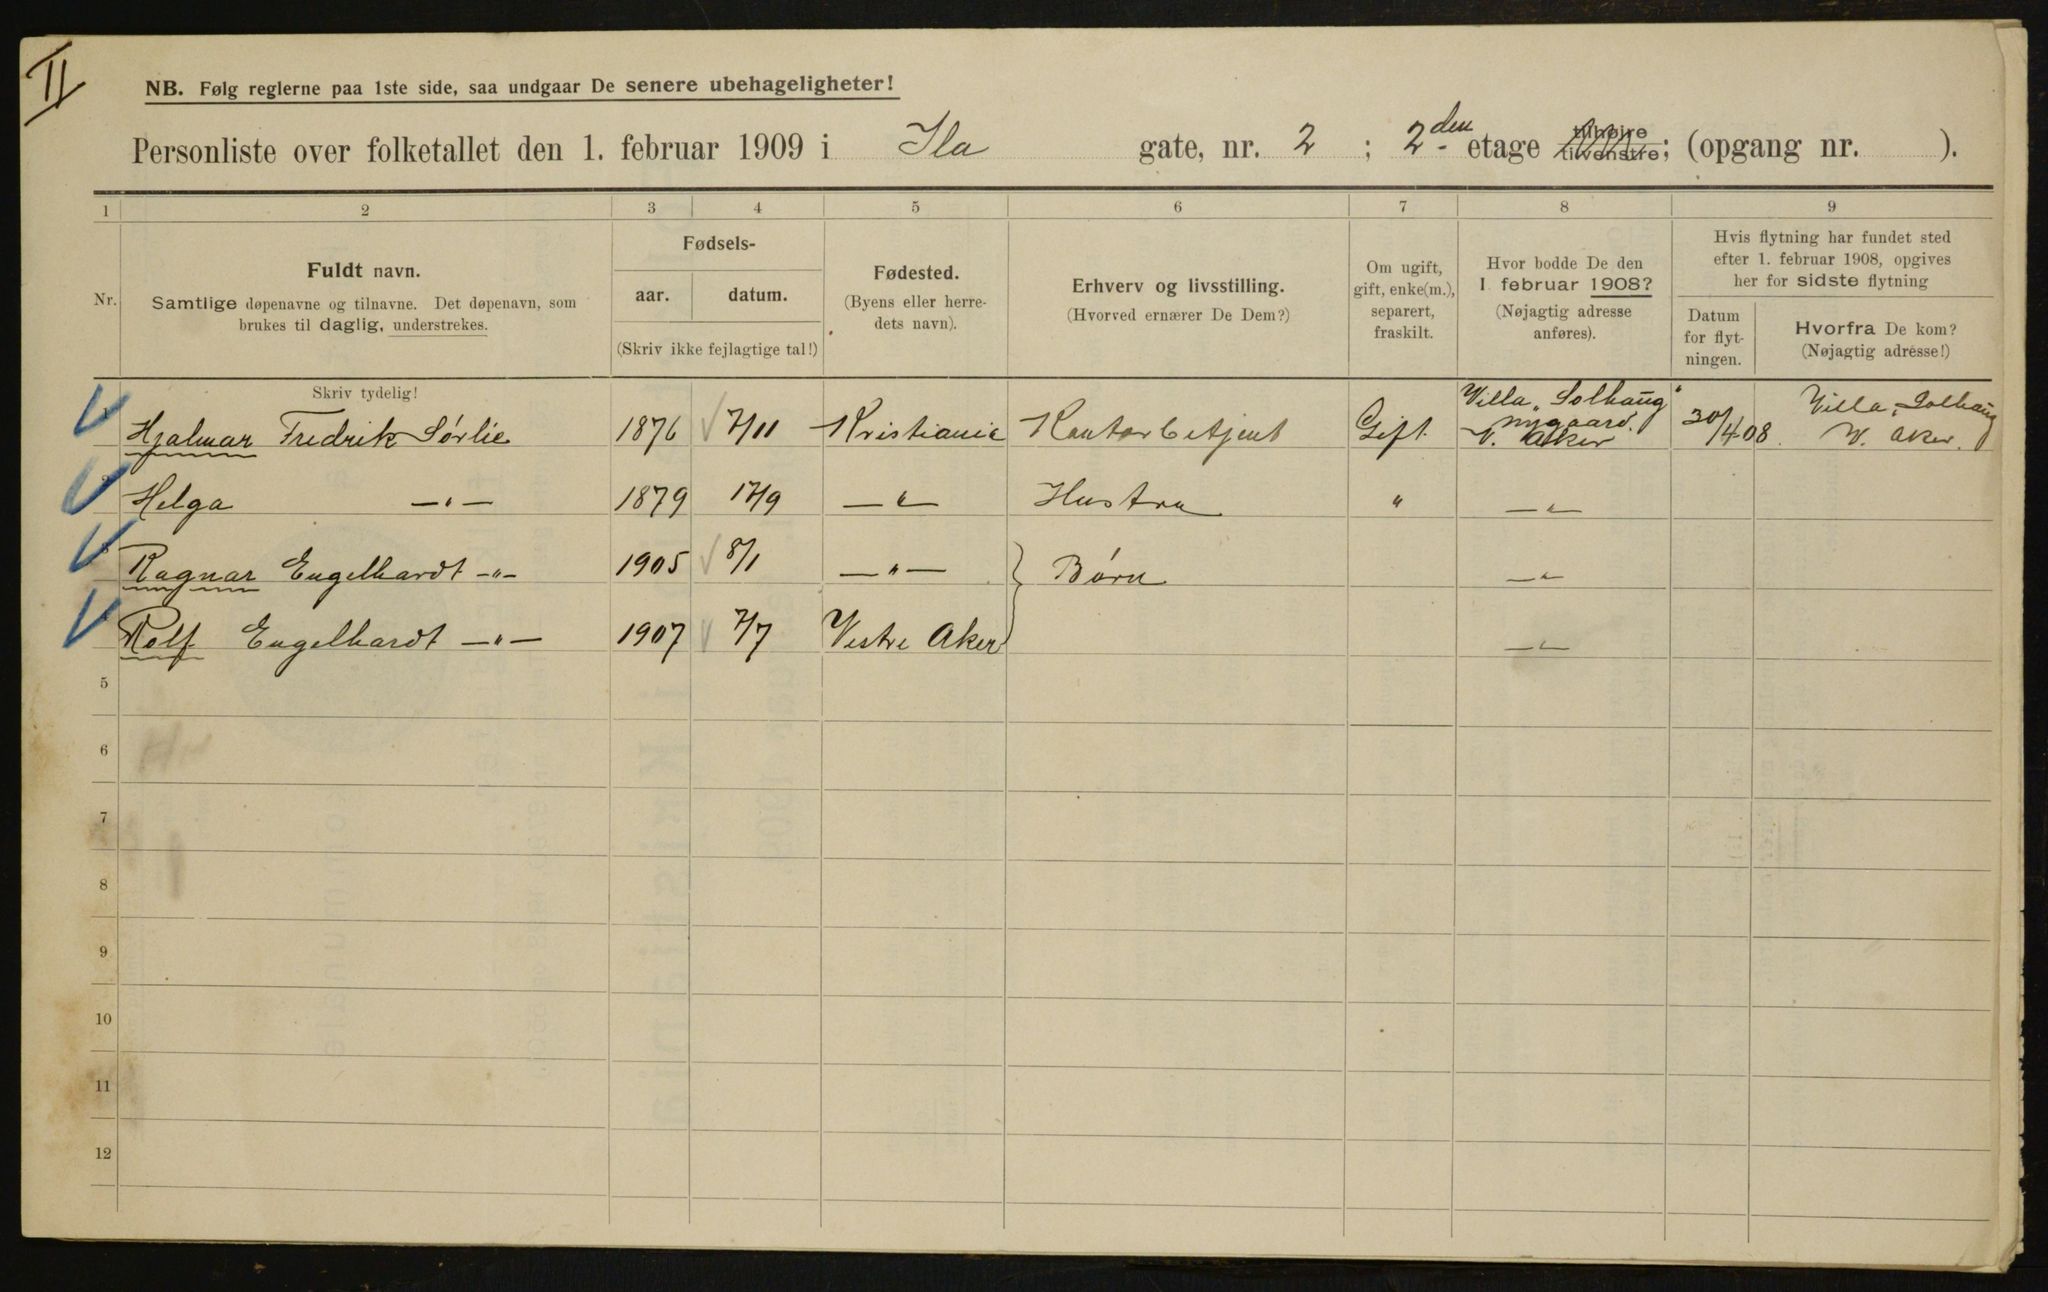 II
NB. Følg reglerne paa 1ste side, saa undgaar De senere ubehageligheter!
Personliste over folketallet den 1. februar 1909 i Ila gate, nr. 2 ; 2den etage tilhøire tilvenstre; (opgang nr. ).
1 2 3 4 5 6 7 8 9
Nr.
Fuldt navn.
Samtlige døpenavne og tilnavne. Det døpenavn, som
brukes til daglig, understrekes.
Fødsels-
aar. datum.
(Skriv ikke fejlagtige tal!)
Fødested.
(Byens eller herre-
dets navn).
Erhverv og livsstilling.
(Hvorved ernærer De Dem?)
Om ugift,
gift, enke(m.),
separert,
fraskilt.
Hvor bodde De den
1 februar 1908?
(Nøjagtig adresse
anføres).
Hvis flytning har fundet sted
efter 1. februar 1908, opgives
her for sidste flytning
Datum
for flyt-
ningen.
Hvorfra De kom?
(Nøjagtig adresse!)
Skriv tydelig!
Hjalmar Fredrik Sørlie 1876 7/11 Kristiania Kontorbetjent Gift. Villa „Solhaug" Nygaard. V. Aker 30/4 08. Villa „Solhaug V. Aker.
Helga —„— 1879 17/9 —„— Hustru „ —„—
Ragnar Engelhardt -„- 1905 8/1 —„— } Børn —„—
Rolf Engelhardt —„— 1907 7/7 Vestre Aker —„—
5
6
7
8
9
10
11
12